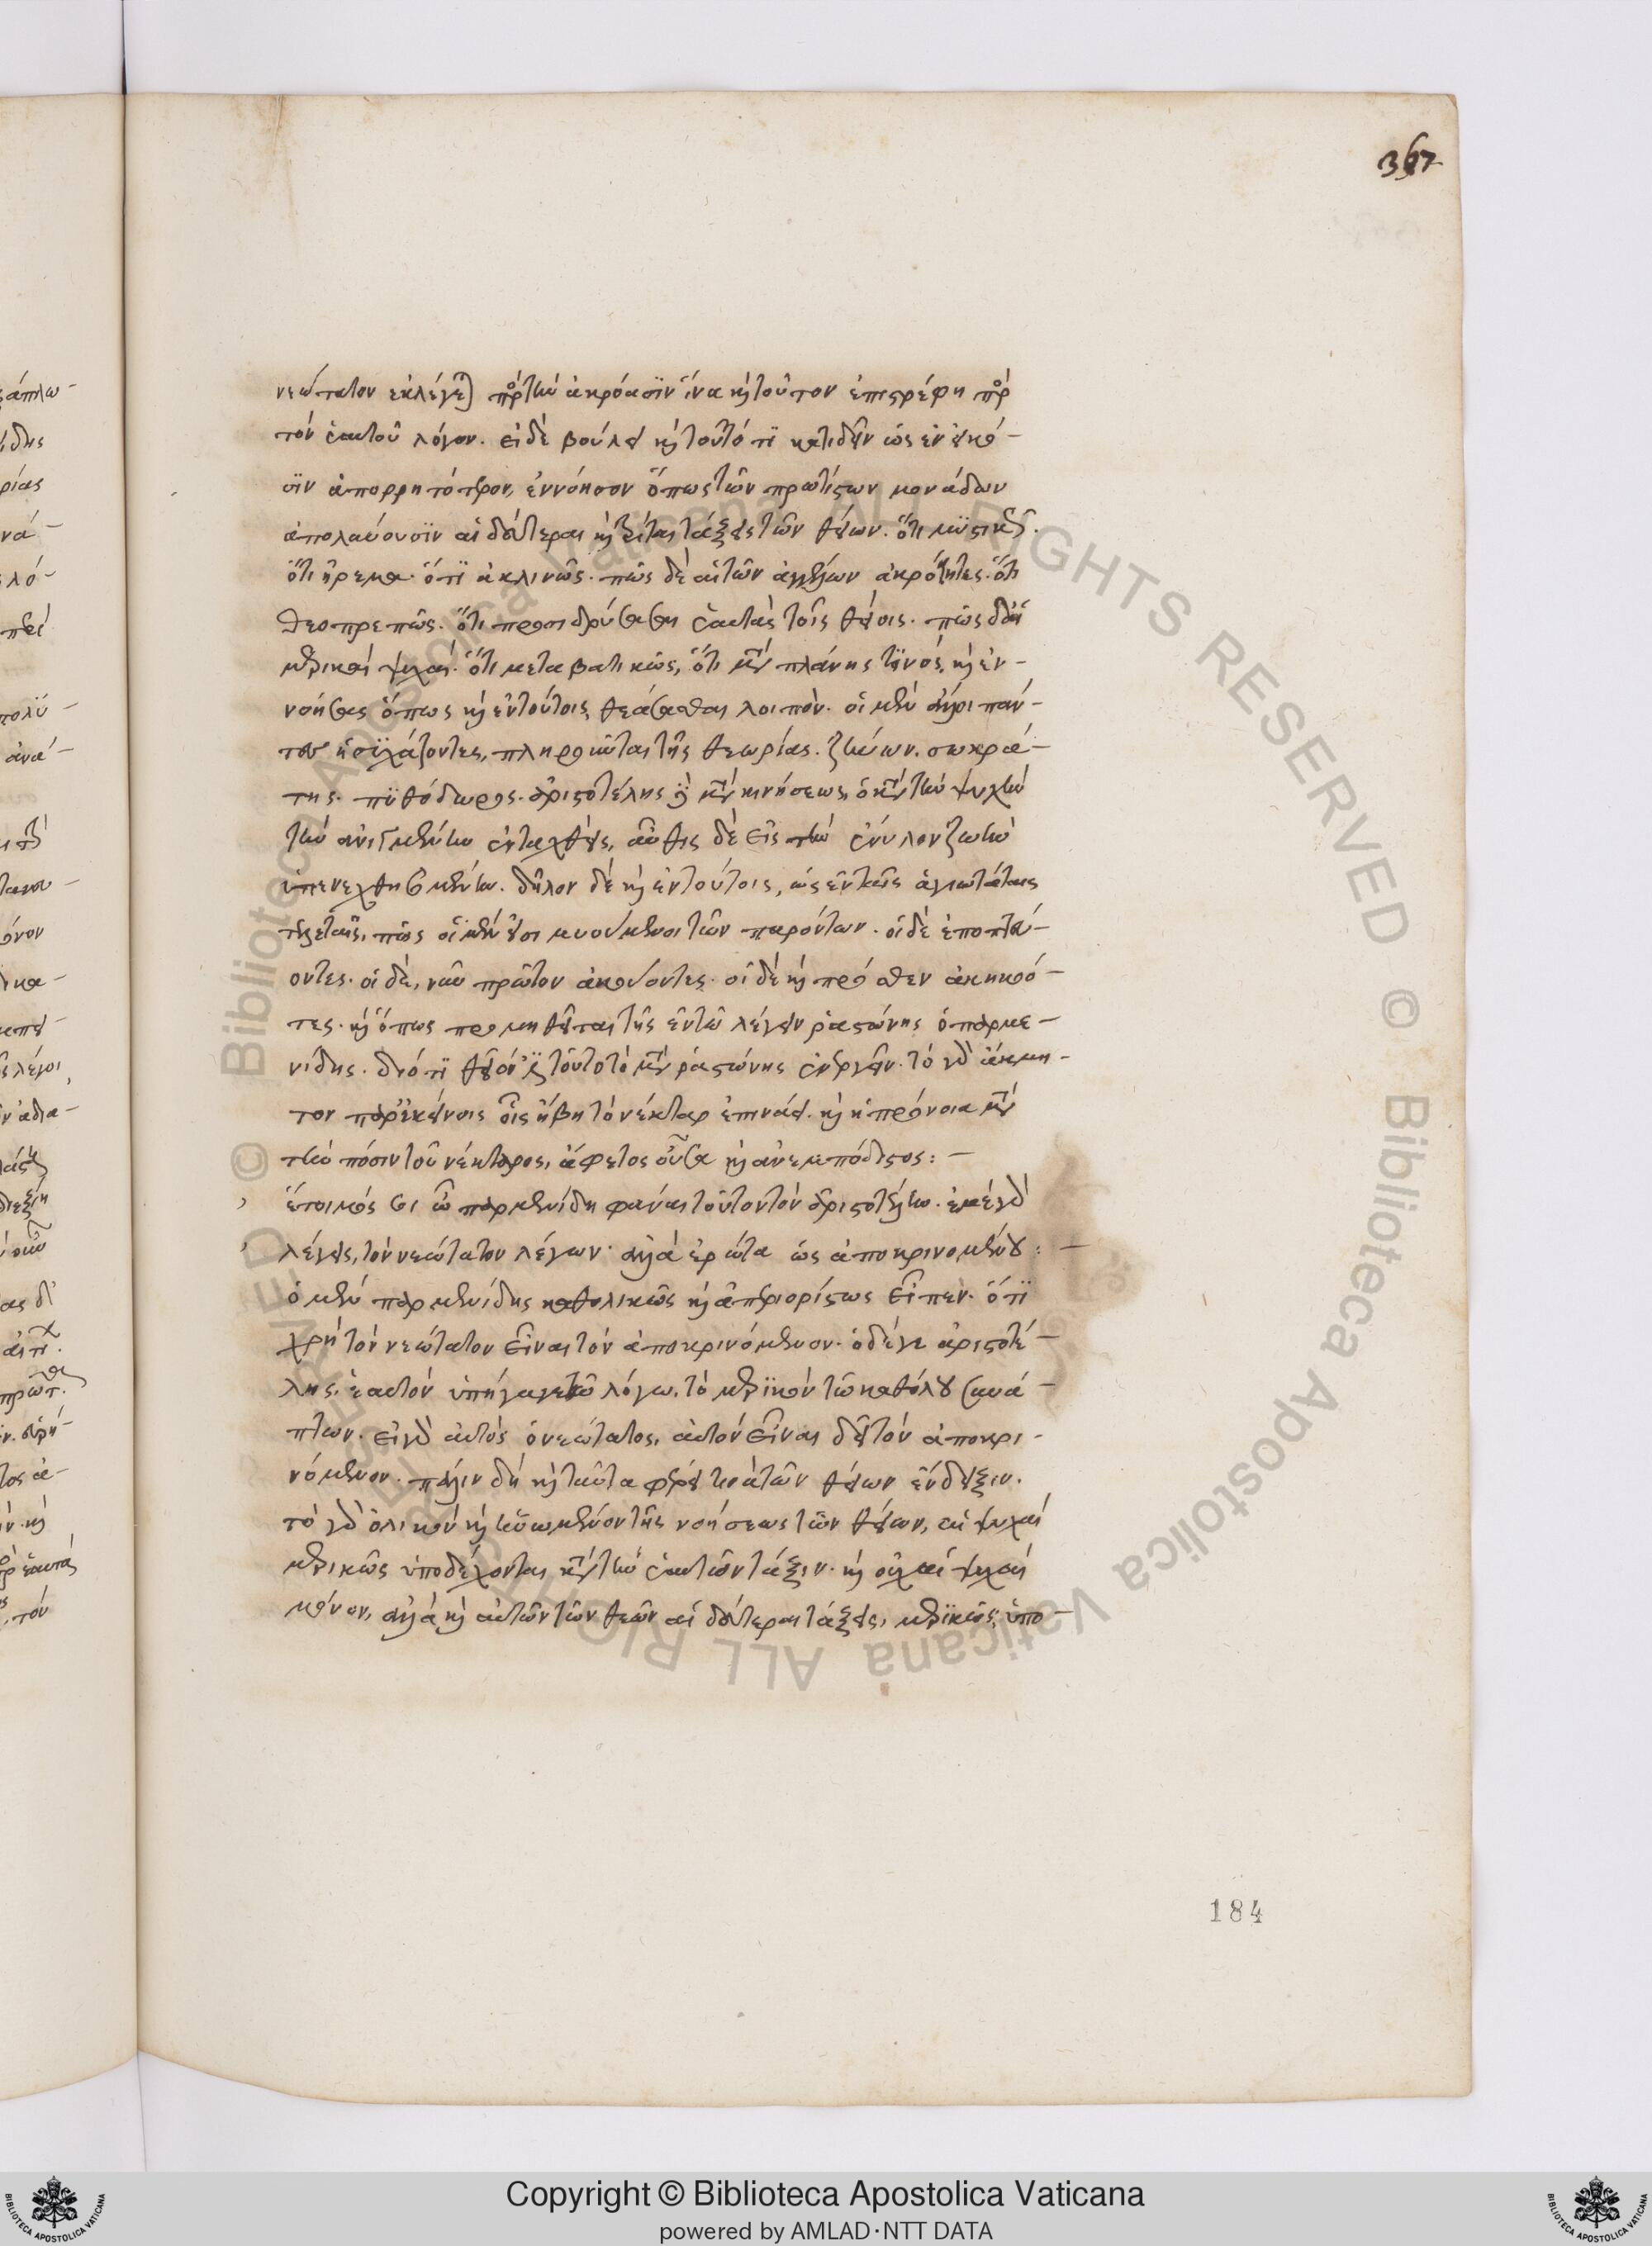 367
νεώτατον ἐκλέγεται πρὸς τὴν ἀκρόασϊν ἵνα καὶ τοῦτον ἐπιστρέφη πρὸς
τὸν ἑαυτοῦ λόγον. εἰ δὲ βούλει καὶ τοῦτό τϊ κατιδεῖν ὡς ἐν εἰκό-
σϊν ἀπορρητότερον, ἐννόησον ὅπως τῶν πρωτίστων μονάδων
ἀπολαύουσϊν αἱ δεύτεραι καὶ τρίται τάξεις τῶν θείων. ὅτι μϋστικῶς.
ὅτι ἤρεμα. ὅτϊ ἀκλινῶς. πῶς δὲ αἱ τῶν ἀγγέλων ἀκρότητες. ὅτι
θεοπρεπῶς. ὅτι προσιδρύσασαι ἑαυτὰς τοῖς θείοις. πῶς δὲ αἱ
μερικαὶ ψυχαί. ὅτι μεταβατικῶς, ὅτι μετὰ πλάνης τϊνός. καὶ ἐν-
νοήσας ὅπως καὶ ἐν τούτοις θεάσασθαι λοιπόν. οἱ μὲν ἄλλοι παν-
τος ἡσϋχάζοντες, πληροῦνται τῆς θεωρίας. ζήνων. σωκρά-
της. πϋθόδωρος. ἀριστοτέλης δὲ μετὰ κινήσεως, ὁ κατὰ τὴν ψυχὴν
τὴν ἀνιεμένην ἐνταχθεὶς, αὖθις δὲ εἰς τὴν ἔνυλον ζωὴν
ὑπενεχθησομένην. δῆλον δὲ καὶ ἐν τούτοις, ὡς ἐν ταῖς ἁγιωτάταις
τελεταῖς, πῶς οἱ μέν εἰσι μυούμενοι τῶν παρόντων. οἱ δὲ ἐποπτεύ-
οντες. οἱ δὲ, νῦν πρῶτον ἀκούοντες. οἱ δὲ καὶ πρόσθεν ἀκηκοό-
τες. καὶ ὅπως προμηθεῖται τῆς ἐν τῶ λέγειν ῥαστώνης ὁ παρμε-
νίδης. διότϊ θεῖόν ἐστι τοῦτο τὸ μετὰ ῥαστώνης ἐνεργεῖν. τὸ γὰρ ἄκμη-
τον παρ' ἐκείνοις οἷς ἥβη τὸ νέκταρ ἐπινάει. καὶ ἡ πρόνοια κατὰ
τὴν πόσιν τοῦ νέκταρος, ἄφετος οὖσα καὶ ἀνεμπόδιστος: —
ἕτοιμός σοι ὦ παρμενίδη φάναι τοῦτον τὸν ἀριστοτέλην. ἐμὲ γὰρ
λέγεις, τὸν νεώτατον λέγων. ἀλλὰ ἐρώτα ὡς ἀποκρινομένου: —
ὁ μὲν παρμενίδης καθολικῶς καὶ ἀπεριορίστως εἶπεν. ὅτϊ
χρὴ τὸν νεώτατον εἶναι τὸν ἀποκρινόμενον. ὁ δέ γε ἀριστοτέ-
λης, ἑαυτὸν ὑπήγαγε τῶ λόγω, τὸ μερϊκὸν τῶ καθόλου συνά-
πτων. εἰ γὰρ αὐτὸς ὁ νεώτατος, αὐτὸν εἶναι δεῖ τὸν ἀποκρι-
νόμενον. πάλιν δὴ καὶ ταῦτα φέρει τινὰ τῶν θείων ἔνδειξιν.
τὸ γὰρ ὁλικὸν καὶ ἡνωμένον τῆς νοήσεως τῶν θείων, αἱ ψυχαὶ
μερικῶς ὑποδέχονται κατὰ τὴν ἑαυτῶν τάξιν. καὶ οὐχ αἱ ψυχαὶ
μόνον, ἀλλὰ καὶ αὐτῶν τῶν θεῶν αἱ δεύτεραι τάξεις, μερϊκῶς ὑπο-
184
Copyright © Biblioteca Apostolica Vaticana
powered by AMLAD·NTT DATA